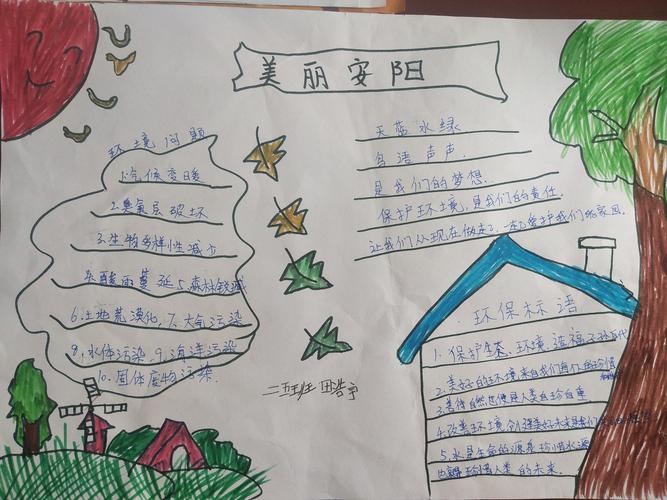 美丽安阳
环境问题
1.气候变暖
2.臭氧层破坏
3.生物多样性减少
4.酸雨蔓延 5.森林锐减
6.土地荒漠化,7.大气污染
8.水体污染,9.海洋污染
10.固体废物污染.
二五班 田浩宇
天蓝水绿
鸟语声声
是我们的梦想.
保护环境,是我们的责任.
让我们从现在做起,一起爱护我们的家园.
环保标语
1.保护生态环境造福子孙后代
2.美好的环境来自我们每人的珍惜
3.善待自然也便是人类自珍自重
4.改善环境,创造美好未来是我们
5.水是生命的源泉珍惜水源
也就是珍惜人类的未来.